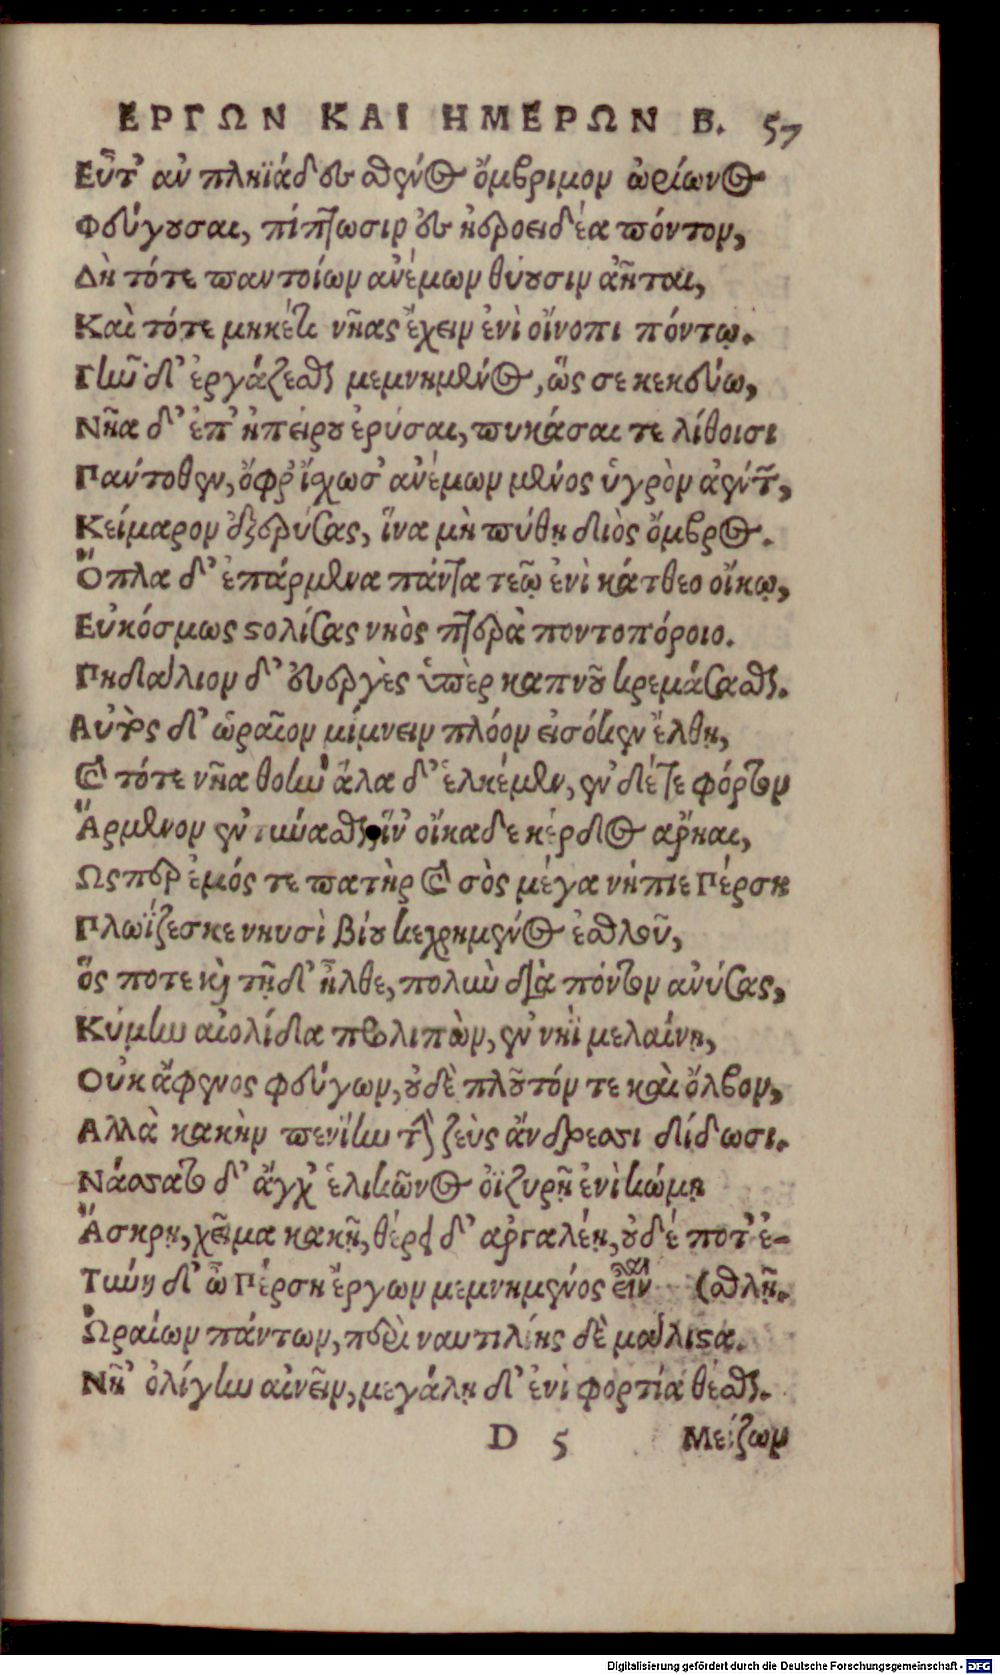 ΕΡΓΩΝ ΚΑΙ ΗΜΕΡΩΝ Β. 57
Εὖτ' ἂν πληϊάδες σθένος ὄμβριμον ὠρίωνος
Φεύγουσαι, πίπτωσιν ἐς ἠεροειδέα πόντον,
Δὴ τότε παντοίων ἀνέμων θύουσιν ἀῆται,
Καὶ τότε μηκέτι νῆας ἔχειν ἐνὶ οἴνοπι πόντῳ.
Γῆν δ' ἐργάζεσθαι μεμνημένος, ὥς σε κελεύω,
Νῆα δ' ἐπ' ἠπείρου ἐρύσαι, πυκάσαι τε λίθοισι
Πάντοθεν, ὄφρ' ἴχωσ' ἀνέμων μένος ὑγρὸν ἀέντων,
Χείμαρον ἐξερύσας, ἵνα μὴ πύθῃ διὸς ὄμβρος.
Ὅπλα δ' ἐπάρμενα πάντα τεῷ ἐνὶ κάτθεο οἴκῳ,
Εὐκόσμως στολίσας νηὸς πτερὰ ποντοπόροιο.
Πηδάλιον δ' εὐεργὲς ὑπὲρ καπνοῦ κρεμάσασθαι.
Αὐτὸς δ' ὡραῖον μίμνειν πλόον εἰσόκεν ἔλθῃ,
Καὶ τότε νῆα θοὴν ἅλα δ' ἑλκέμεν, ἐν δέ τε φόρτον
Ἄρμενον ἐντύνασθαι, ἵν' οἴκαδε κέρδος ἄρηαι,
Ὥσπερ ἐμός τε πατὴρ καὶ σὸς μέγα νήπιε Πέρση
Πλωΐζεσκε νηυσὶ βίου κεχρημένος ἐσθλοῦ,
ὅς ποτε καὶ τῇδ' ἦλθε, πολὺν διὰ πόντον ἀνύσας,
Κύμην αἰολίδα προλιπὼν, ἐν νηῒ μελαίνῃ,
Οὐκ ἄφενος φεύγων, οὐδὲ πλοῦτόν τε καὶ ὄλβον,
Ἀλλὰ κακὴν πενίην τὴν ζεὺς ἄνδρεσσι δίδωσι.
Νάσσατο δ' ἄγχ' ἑλικῶνος ὀϊζυρῇ ἐνὶ κώμῃ
Ἄσκρῃ, χεῖμα κακῇ, θέρει δ' ἀργαλέῃ, οὐδέ ποτ' ἐ-
Τύνη δ' ὦ Πέρση ἔργων μεμνημένος εἶναι (σθλῇ.
Ὡραίων πάντων, περὶ ναυτιλίης δὲ μάλιστα.
Νῆ' ὀλίγην αἰνεῖν, μεγάλῃ δ' ἐνὶ φορτία θέσθαι.
D 5 Μείζων
Digitalisierung gefördert durch die Deutsche Forschungsgemeinschaft - DFG